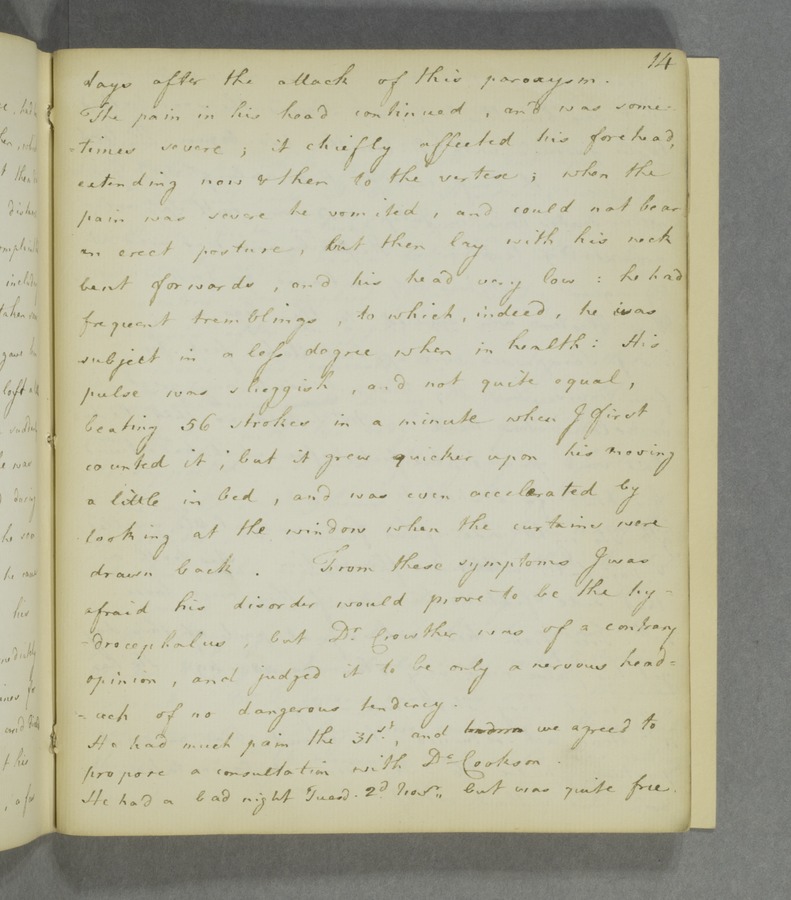 14
days after the attack of this paroxysm.
The pain in his head continued, and was some-
-times severe; it chiefly affected his forehead,
extending now & then to the vertex; when the
pain was severe he vomited, and could not bear
an erect posture, but then lay with his neck
bent forwards, and his head very low: he had
frequent tremblings, to which, indeed, he was
subject in a less degree when in health: His
pulse was sluggish, and not quite equal,
beating 56 strokes in a minute when I first
counted it; but it grew quicker upon his moving
a little in bed, and was even accelerated by
looking at the window when the curtains were
drawn back. From these symptoms I was
afraid his disorder would prove to be the hy-
-drocephalus, but Dr. Crowther was of a contrary
opinion, and judged it to be only a nervous head-
-ach of no dangerous tendency.
He had much pain the 31st, and we agreed to
propose a consultation with Dr Cookson.
He had a bad night Tuesd. 2d Novr., but was quite free